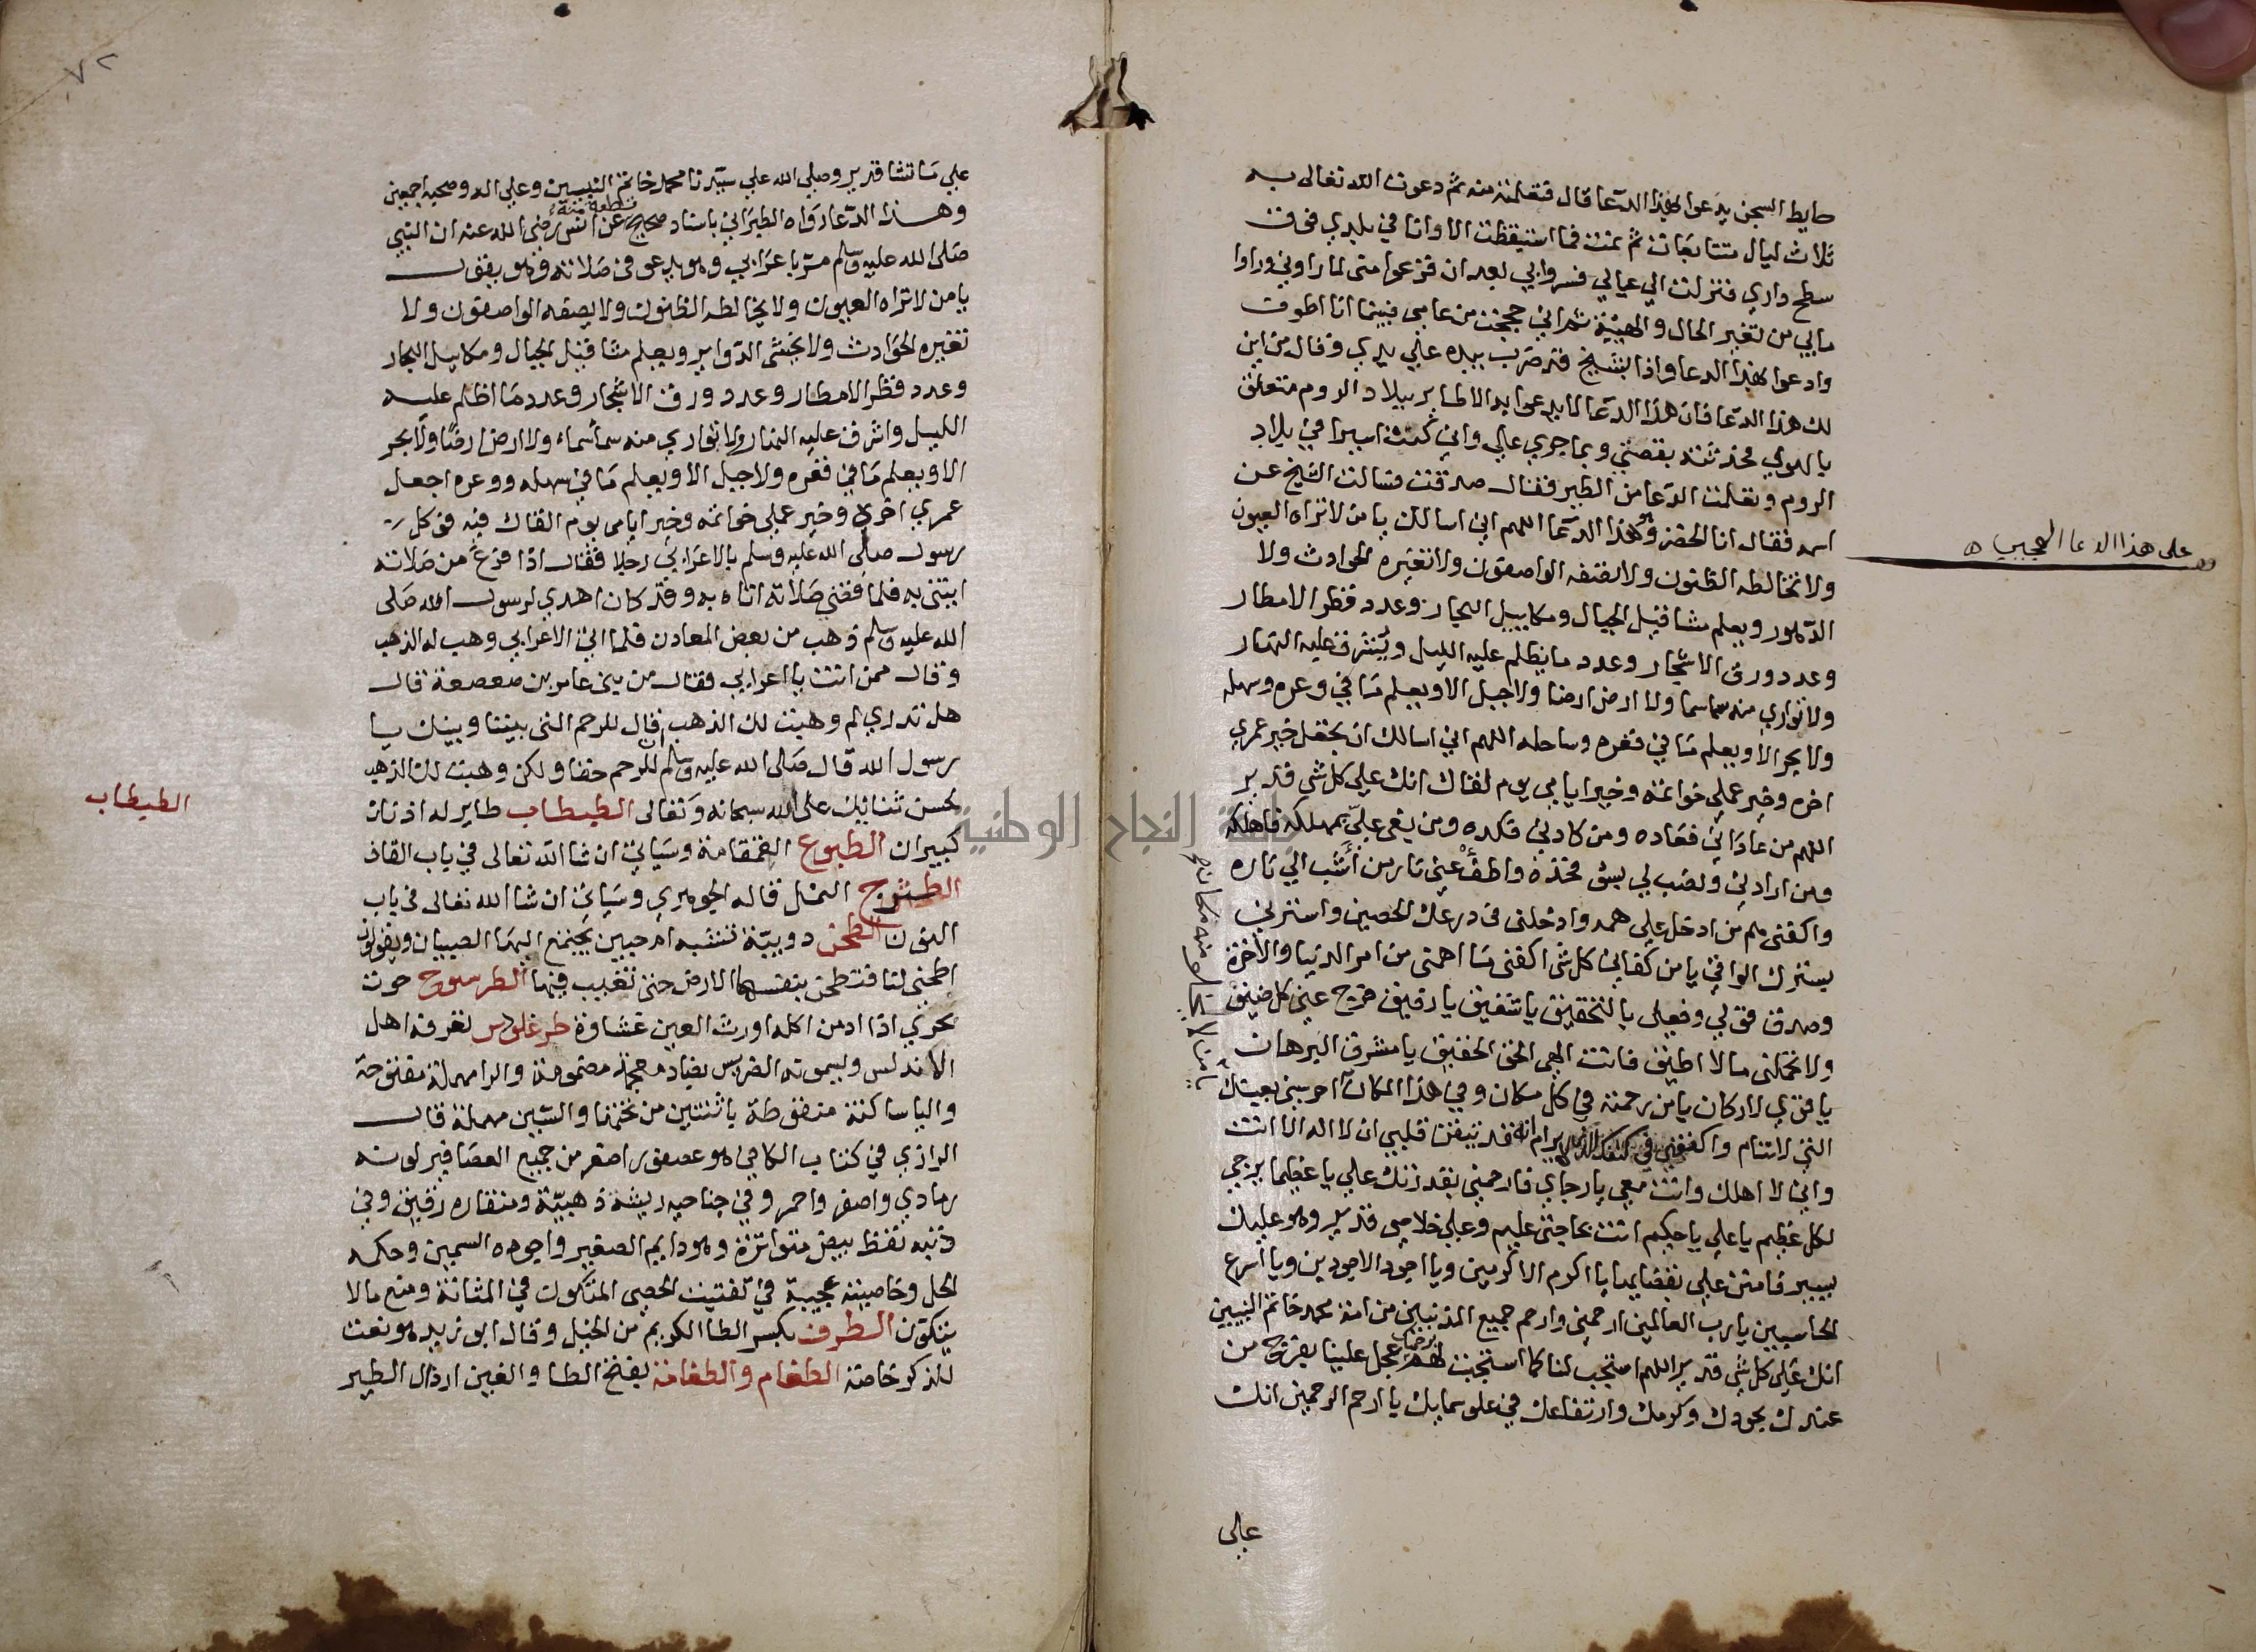 حايط السجن يدعوا بهذا الدعا قال فتعلمته منه ثم دعوت الله تعالى به
ثلاث ليال متتابعات ثم نمت فما استيقظت الا وانا في بلدي فوق
سطح داري فنزلت الي عيالي فسروا بي بعد ان فزعوا مني لما راوني وراوا
مابي من تغير الحال والهيئة ثم اني حججت من عامي فبينما انا اطوف
وادعوا بهذا الدعا واذا بشيخ قد ضرب بيده علي يدي وقال من اين
لك هذا الدعا فان هذا الدعا لا يدعوا به الا طاير ببلاد الروم متعلق
بالهوي فحدثته بقصتي وبما جري علي واني كنت اسيرا في بلاد
الروم وتعلمت الدعا من الطير فقال صدقت فسالت الشيخ عن
اسمه فقال انا الخضر وهو هذا الدعا اللهم اني اسالك يا من لا تراه العيون
على هذا الدعا العجيب ه
ولا تخالطه الظنون ولا يصفه الواصفون ولا تغيره الحوادث ولا
الدهور ويعلم مثاقيل الجبال ومكاييل البحار وعدد قطر الامطار
وعدد ورق الاشجار وعدد ما يظلم عليه الليل ويشرق عليه النهار
ولا تواري منه سما سما ولا ارض ارضا ولا جبل الا ويعلم ما في وعره وسهله
ولا بحر الا ويعلم ما في قعره وساحله اللهم اني اسالك ان تجعل خير عمري
اخره وخير عملي خواتمه وخير ايامي يوم لقاك انك علي كل شي قدير
اللهم من عاداني فعاده ومن كادني فكده ومن بغي علي بمهلكه فاهلكه
ومن ارادني ونصب لي بسؤ فخذه واطفأ عني نار من أشب الي ناره
واكفني هم من ادخل علي همه وادخلني في درعك الحصين واسترني
بسترك الوافي يا من كفاني كل شي اكفني ما اهمني من امر الدنيا والاخرة
وصدق قولي وفعلي بالتحقيق يا شفيق يا رفيق فرج عني كل ضيق
ولا تحملني ما لا اطيق فانت الهي الحق الحقيق يا مشرق البرهان
يا قوي الاركان يا من رحمته في كل مكان وفي هذا المكان احرسني بعينك
يا من لا يخلو منه مكان صح
التي لا تنام واكنفني في كنفك الذي لا يرام انه قد تيقن قلبي ان لا اله الا انت
واني لا اهلك وانت معي يا رجاي فارحمني بقدرتك علي يا عظيما يرجي
لكل عظيم يا علي يا حليم انت بحاجتي عليم وعلي خلاصي قدير وهو عليك
يسير فامنن علي بقضايها يا اكرم الاكرمين ويا اجود الاجودين ويا اسرع
الحاسبين يا رب العالمين ارحمني وارحم جميع المذنبين من امة محمد خاتم النبيين
انك علي كل شي قدير اللهم استجب لنا كما استجبت لهم برحمتك عجل علينا بفرج من
عندك بجودك وكرمك وارتفاعك في علو سمايك يا ارحم الرحمين انك
علي
٧٢
علي ما تشا قدير وصلي الله علي سيدنا محمد خاتم النبيين وعلي اله وصحبه اجمعين
وهذا الدعا رواه الطبراني باسناد صحيح قطعة منه عن انس رضي الله عنه ان النبي
صلى الله عليه وسلم مر باعرابي وهو يدعو في صلاته وهو يقول
يا من لا تراه العيون ولا يخالطه الظنون ولا يصفه الواصفون ولا
تغيره الحوادث ولا يخشي الدواير ويعلم مثاقيل الجبال ومكاييل البحار
وعدد قطر الامطار وعدد ورق الاشجار وعدد ما اظلم عليه
الليل واشرق عليه النهار ولا تواري منه سماً سماءً ولا ارض ارضًا ولا بحر
الا ويعلم ما في قعره ولا جبل الا ويعلم ما في سهله ووعره اجعل
عمري اخره وخير عملي خواتمه وخير ايامي يوم القاك فيه فوكل
رسول صلى الله عليه وسلم بالاعرابي رجلا فقال اذا فرغ من صلاته
ايتني به فلما قضي صلاته اتاه به وقد كان اهدي لرسول الله صلى
الله عليه وسلم ذهب من بعض المعادن فلما اتي الاعرابي وهب له الذهب
وقال ممن انت يا اعرابي فقال من بني عامر بن صعصعة قال
هل تدري لم وهبت لك الذهب قال للرحم التي بيننا وبينك يا
رسول الله قال صلى الله عليه وسلم ان للرحم حقا ولكن وهبت لك الذهب
لحسن ثنايك على الله سبحانه وتعالى الطيطاب طاير له اذنان
الطيطاب
كبيران الطبوع القمقامة وسياتي ان شا الله تعالى في باب القاف
الطثرج النمل قاله الجوهري وسياتي ان شا الله تعالى في باب
النون الطحن دويبة تشبه ام حبين يجتمع اليها الصبيان ويقولون
اطحني لنا فتطحن بنفسها الارض حتى تغيب فيها الطرسوح حوت
بحري اذا ادمن اكله اورث العين غشاوة طرغلودس تعرفه اهل
الاندلس ويسمونه الضريس بضاد معجمة مضمومة والرا مهملة مفتوحة
واليا ساكنة منقوطة باثنتين من تحتها والسين مهملة قال
الرازي في كتاب الكافي هو عصفور اصغر من جميع العصافير لونه
رمادي واصفر واحمر وفي جناحيه ريشة ذهبية ومنقاره رقيق وفي
ذنبه نقط بيض متواترة وهو دايم الصفير واجوده السمين وحكمه
الحل وخاصيته عجيبة في تفتيت الحصي المتكون في المثانة ومنع ما لا
يتكون الطرف بكسر الطا الكريم من الخيل وقال ابو زيد هو نعت
للذكر خاصة الطغام والطغامة بفتح الطا والغين ارذال الطير